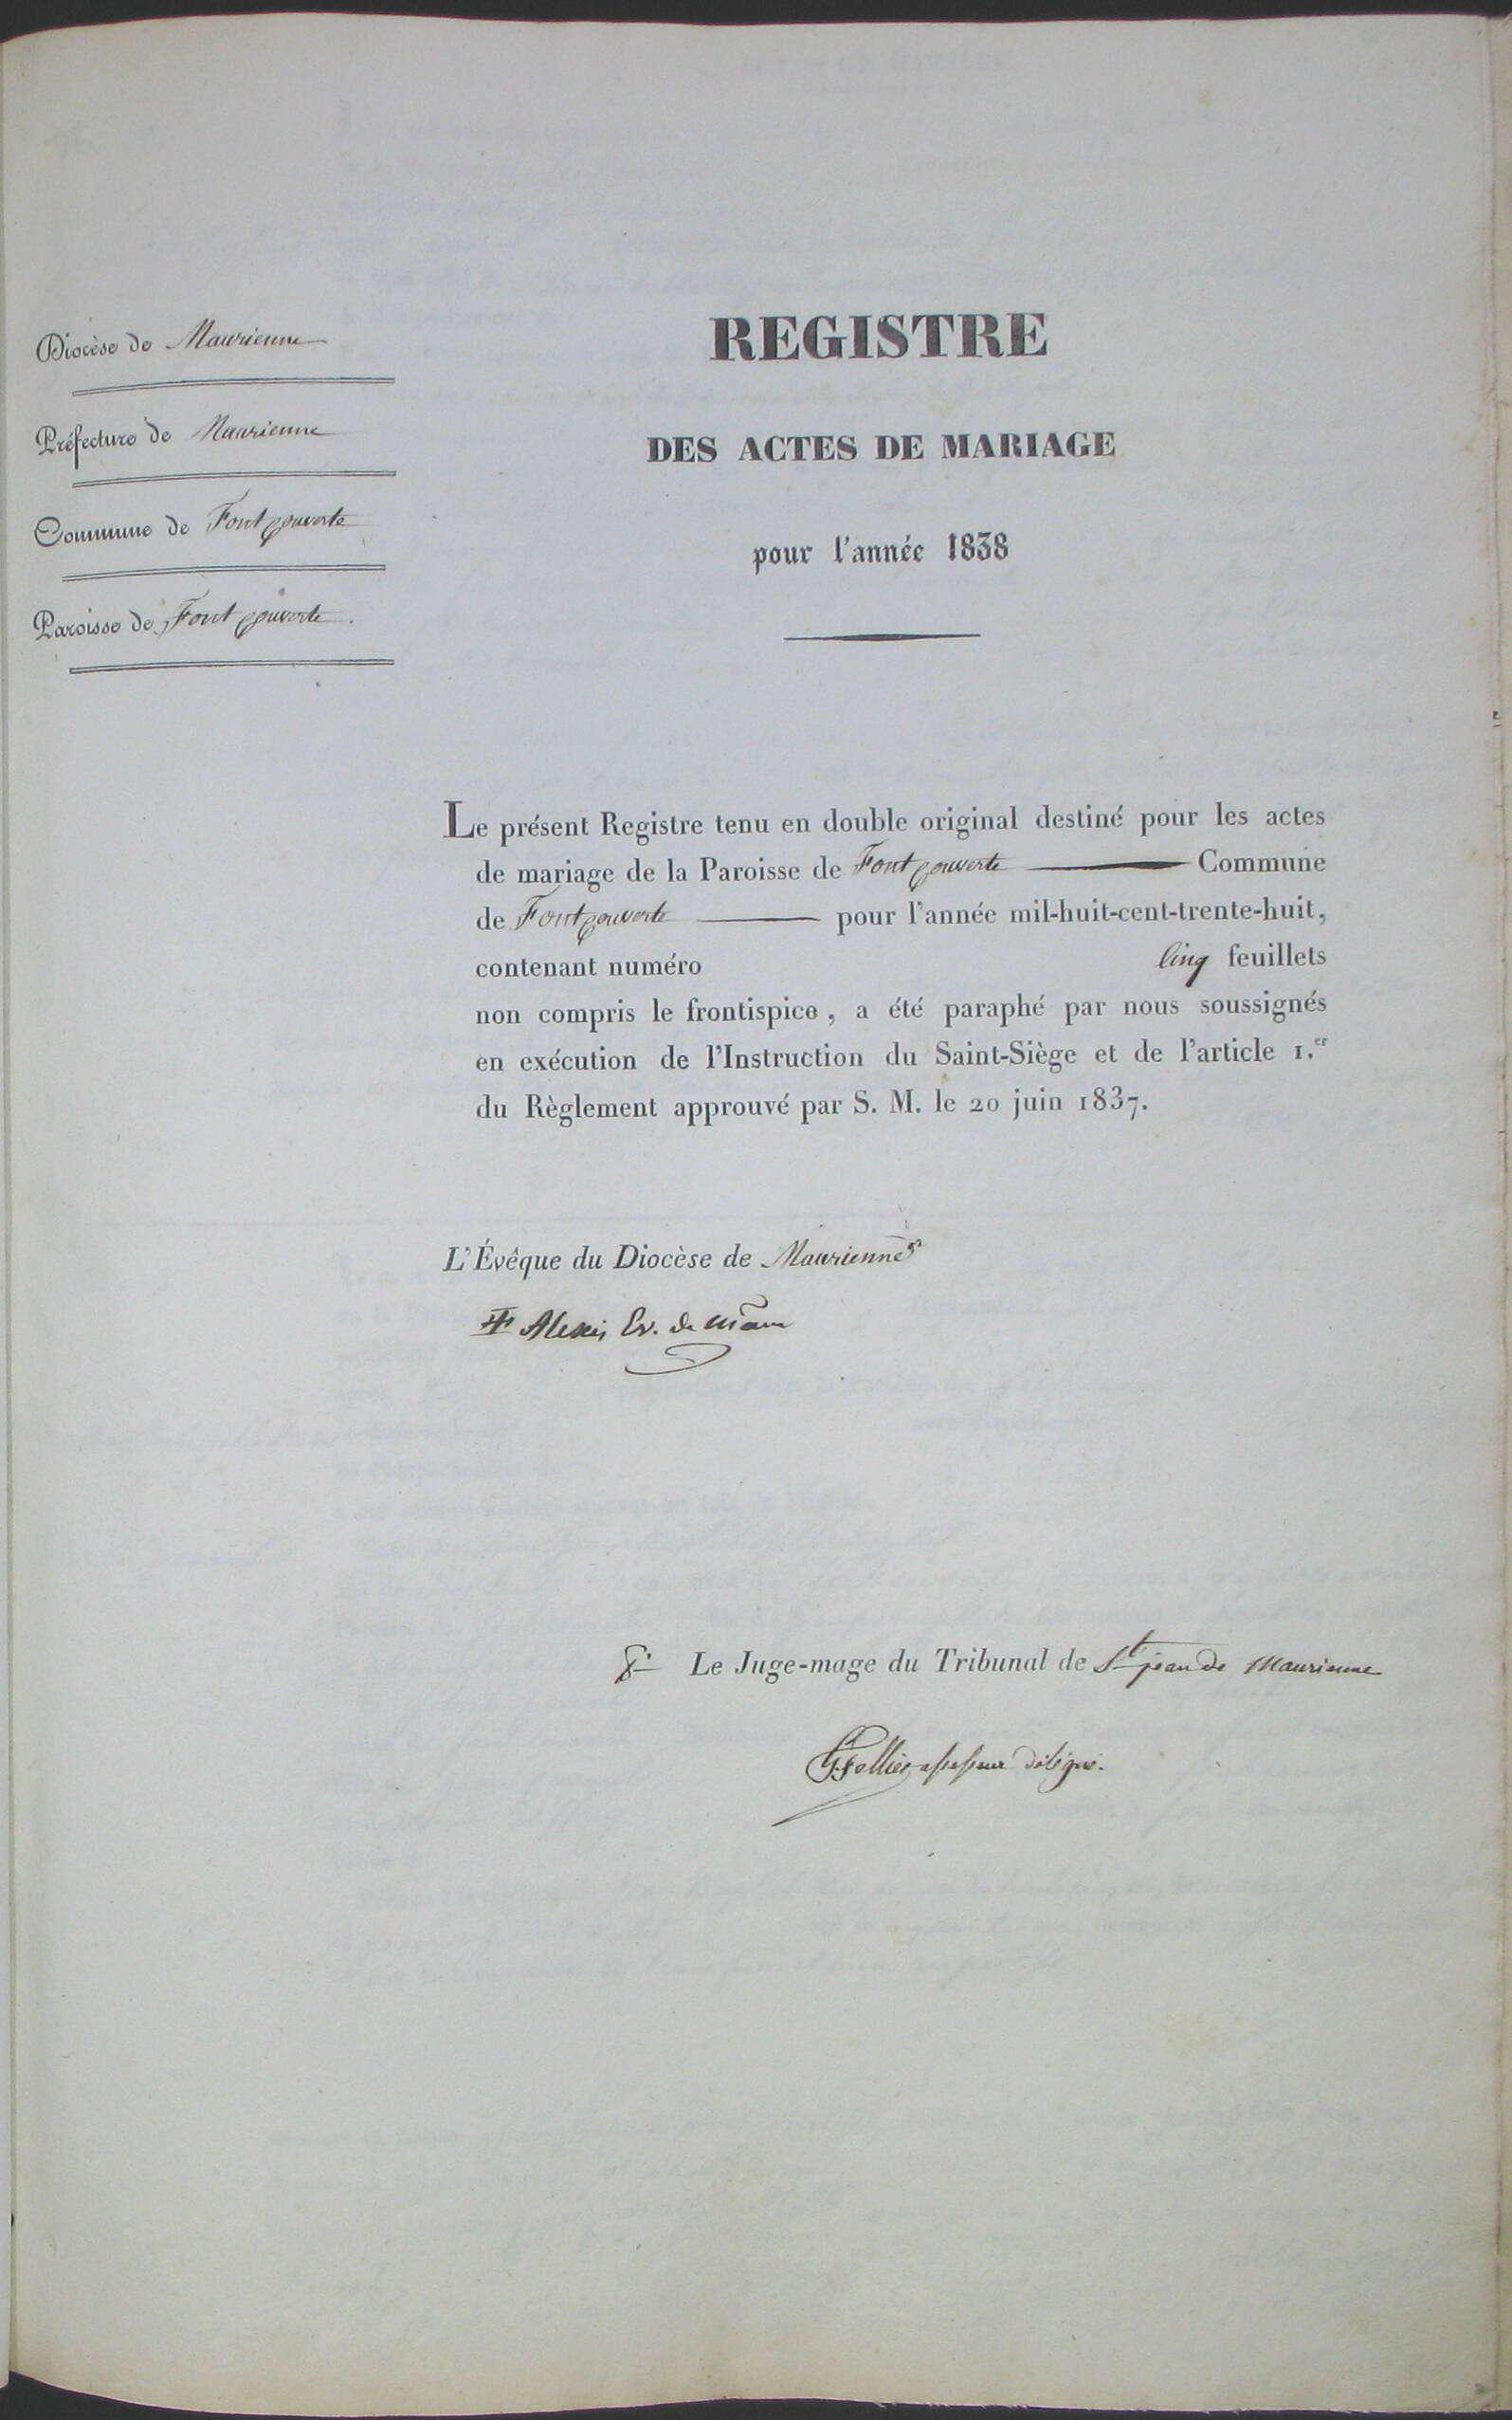 Diocèse de Maurienne
Préfecture de Maurienne
Commune de Fontcouverte
Paroisse de Fontcouverte.
REGISTRE
DES ACTES DE MARIAGE
pour l'année 1838
Le présent Registre tenu en double original destiné pour les actes
de mariage de la Paroisse de Fontcouverte Commune
de Fontcouverte pour l'année mil-huit-cent-trente-huit,
contenant numéro cinq feuillets
non compris le frontispice, a été paraphé par nous soussignés
en exécution de l'Instruction du Saint-Siège et de l'article 1.er
du Règlement approuvé par S. M. le 20 juin 1837.
L'Évêque du Diocèse de Maurienne
Alexis Ev. de
Le Juge-mage du Tribunal de St jean de Maurienne
assesseur délégué.